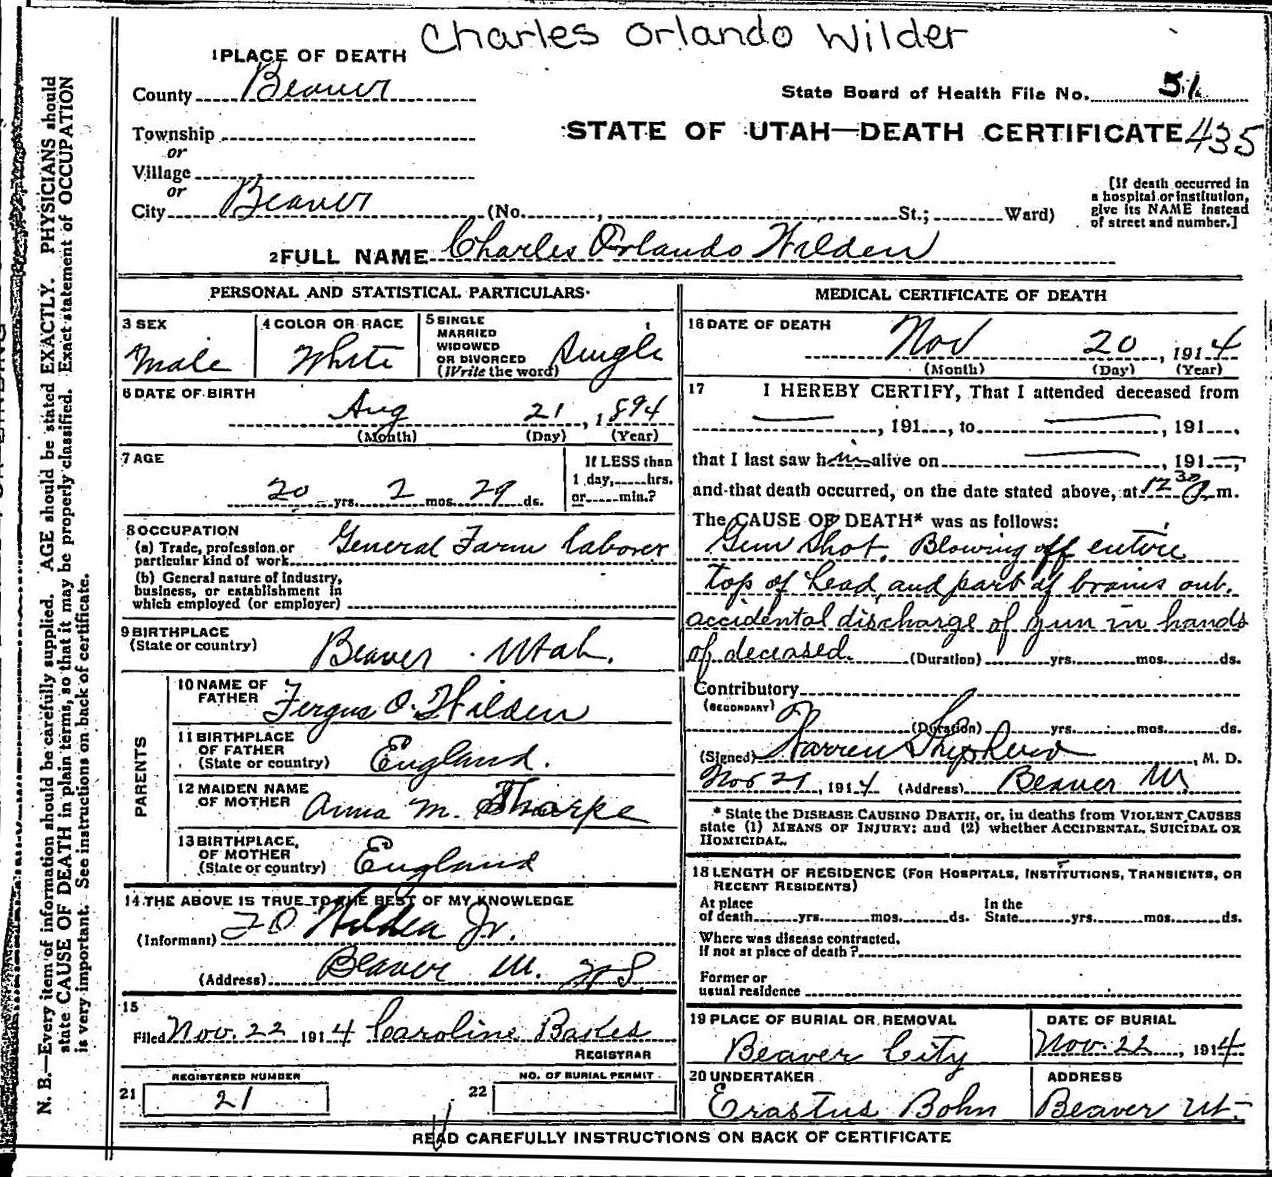 Charles Orlando Wilder
1 PLACE OF DEATH
County Beaver
State Board of Health File No. 51
Township
STATE OF UTAH—DEATH CERTIFICATE 435
or
Village
or
City Beaver (No. , St.; Ward)
[If death occurred in
a hospital or institution,
give its NAME instead
of street and number.]
2 FULL NAME Charles Orlando Wilden
PERSONAL AND STATISTICAL PARTICULARS
3 SEX
Male
4 COLOR OR RACE
White
5 SINGLE
MARRIED
WIDOWED
OR DIVORCED
(Write the word) Single
6 DATE OF BIRTH
Aug 21, 1894
(Month) (Day) (Year)
7 AGE
20 yrs. 2 mos. 29 ds.
If LESS than
1 day, hrs.
or min.?
8 OCCUPATION
(a) Trade, profession or
particular kind of work General Farm laborer
(b) General nature of industry,
business, or establishment in
which employed (or employer)
9 BIRTHPLACE
(State or country) Beaver Utah.
PARENTS
10 NAME OF
FATHER Fergus O. Wilden
11 BIRTHPLACE
OF FATHER
(State or country) England.
12 MAIDEN NAME
OF MOTHER Anna M. Tharpe
13 BIRTHPLACE
OF MOTHER
(State or country) England
14 THE ABOVE IS TRUE TO THE BEST OF MY KNOWLEDGE
(Informant) F O Wilden Jr.
(Address) Beaver
15
Filed Nov. 22 1914 Caroline
REGISTRAR
21
REGISTERED NUMBER
21
22
NO. OF BURIAL PERMIT
MEDICAL CERTIFICATE OF DEATH
16 DATE OF DEATH
Nov 20, 1914
(Month) (Day) (Year)
17 I HEREBY CERTIFY, That I attended deceased from
, 191 , to , 191 ,
that I last saw him alive on , 191 ,
and that death occurred, on the date stated above, at 12 30 m.
The CAUSE OF DEATH* was as follows:
Gun Shot. Blowing off entire
top of head, and part of brains out.
accidental discharge of gun in hands
of deceased. (Duration) yrs. mos. ds.
Contributory
(SECONDARY)
(Duration) yrs. mos. ds.
(Signed) Warren Shepherd, M. D.
Nov 21, 1914 (Address) Beaver
* State the DISEASE CAUSING DEATH, or, in deaths from VIOLENT CAUSES
state (1) MEANS OF INJURY; and (2) whether ACCIDENTAL, SUICIDAL OR
HOMICIDAL.
18 LENGTH OF RESIDENCE (FOR HOSPITALS, INSTITUTIONS, TRANSIENTS, OR
RECENT RESIDENTS)
At place In the
of death yrs. mos. ds. State yrs. mos. ds.
Where was disease contracted,
If not at place of death?
Former or
usual residence
19 PLACE OF BURIAL OR REMOVAL
Beaver City
DATE OF BURIAL
Nov. 22, 1914
20 UNDERTAKER
Erastus Bohn
ADDRESS
Beaver Ut.
READ CAREFULLY INSTRUCTIONS ON BACK OF CERTIFICATE
N. B.—Every item of information should be carefully supplied. AGE should be stated EXACTLY. PHYSICIANS should
state CAUSE OF DEATH in plain terms, so that it may be properly classified. Exact statement of OCCUPATION
is very important. See instructions on back of certificate.